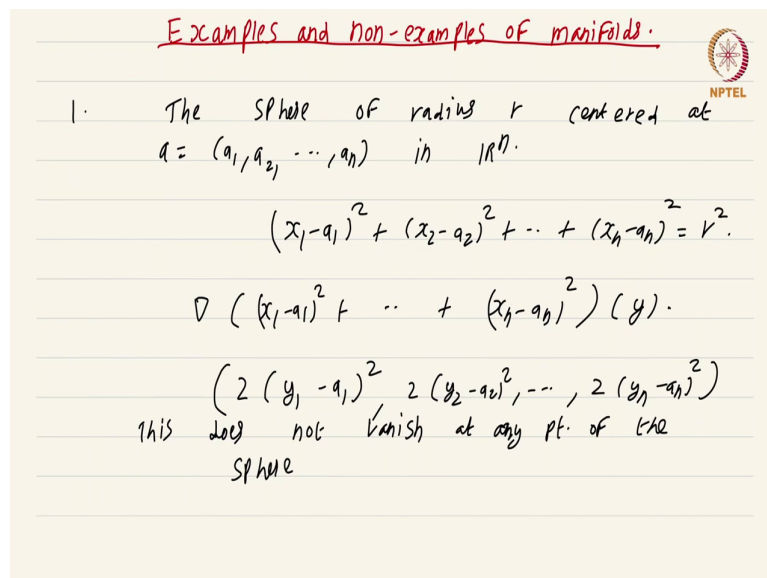 Examples and non-examples of manifolds.
NPTEL
1. The sphere of radius r centered at
a = (a₁, a₂, ..., aₙ) in ℝⁿ.
(x₁-a₁)² + (x₂-a₂)² + .. + (xₙ-aₙ)² = r².
∇ ((x₁-a₁)² + .. + (xₙ-aₙ)²) (y).
(2(y₁-a₁)², 2(y₂-a₂)², ..., 2(yₙ-aₙ)²)
This does not vanish at any pt. of the
sphere